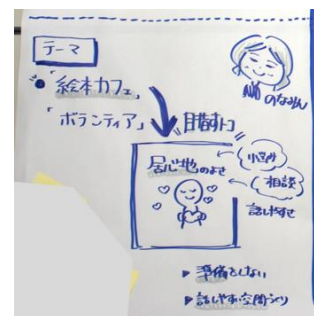 テーマ
「絵本カフェ」
のなみん
「ボランティア」
目指すトコ
居心地のよさ
小さな
相談
話しやすさ
▶ 準備をしない
▶ 話しやすい空間づくり